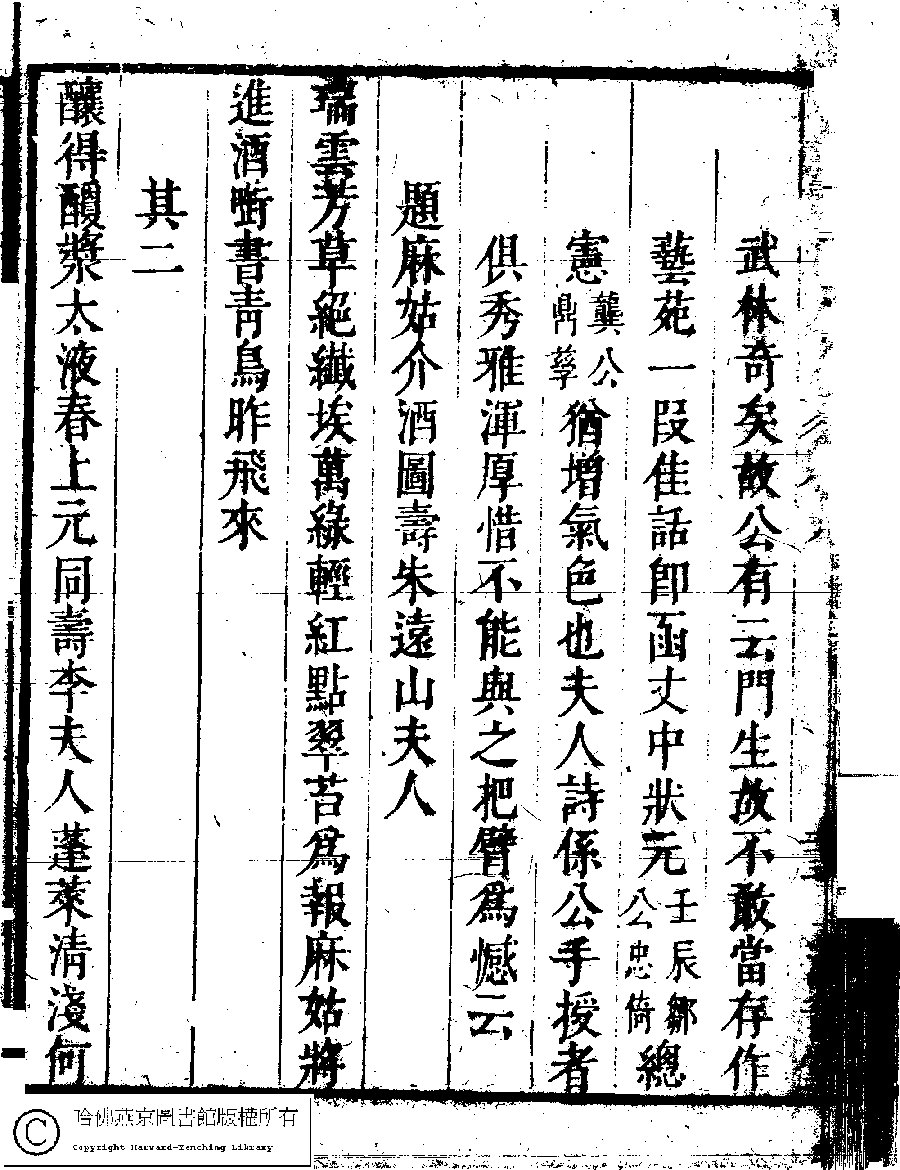 武林奇矣故公有云門生故不敢當存作
藝苑一段佳話卽函丈中狀元壬辰鄒公忠倚總
憲龔公鼎孳猶增氣色也夫人詩係公手授者
俱秀雅渾厚惜不能與之把臂爲憾云
題麻姑介酒圖壽朱遠山夫人
瑞雲芳草絕纖埃萬綠輕紅點翠苔爲報麻姑將
進酒啣書青鳥昨飛來
其二
釀得醍漿太液春上元同壽李夫人蓬萊淸淺何
哈佛燕京圖書館版權所有
Copyright Harvard-Yenching Library